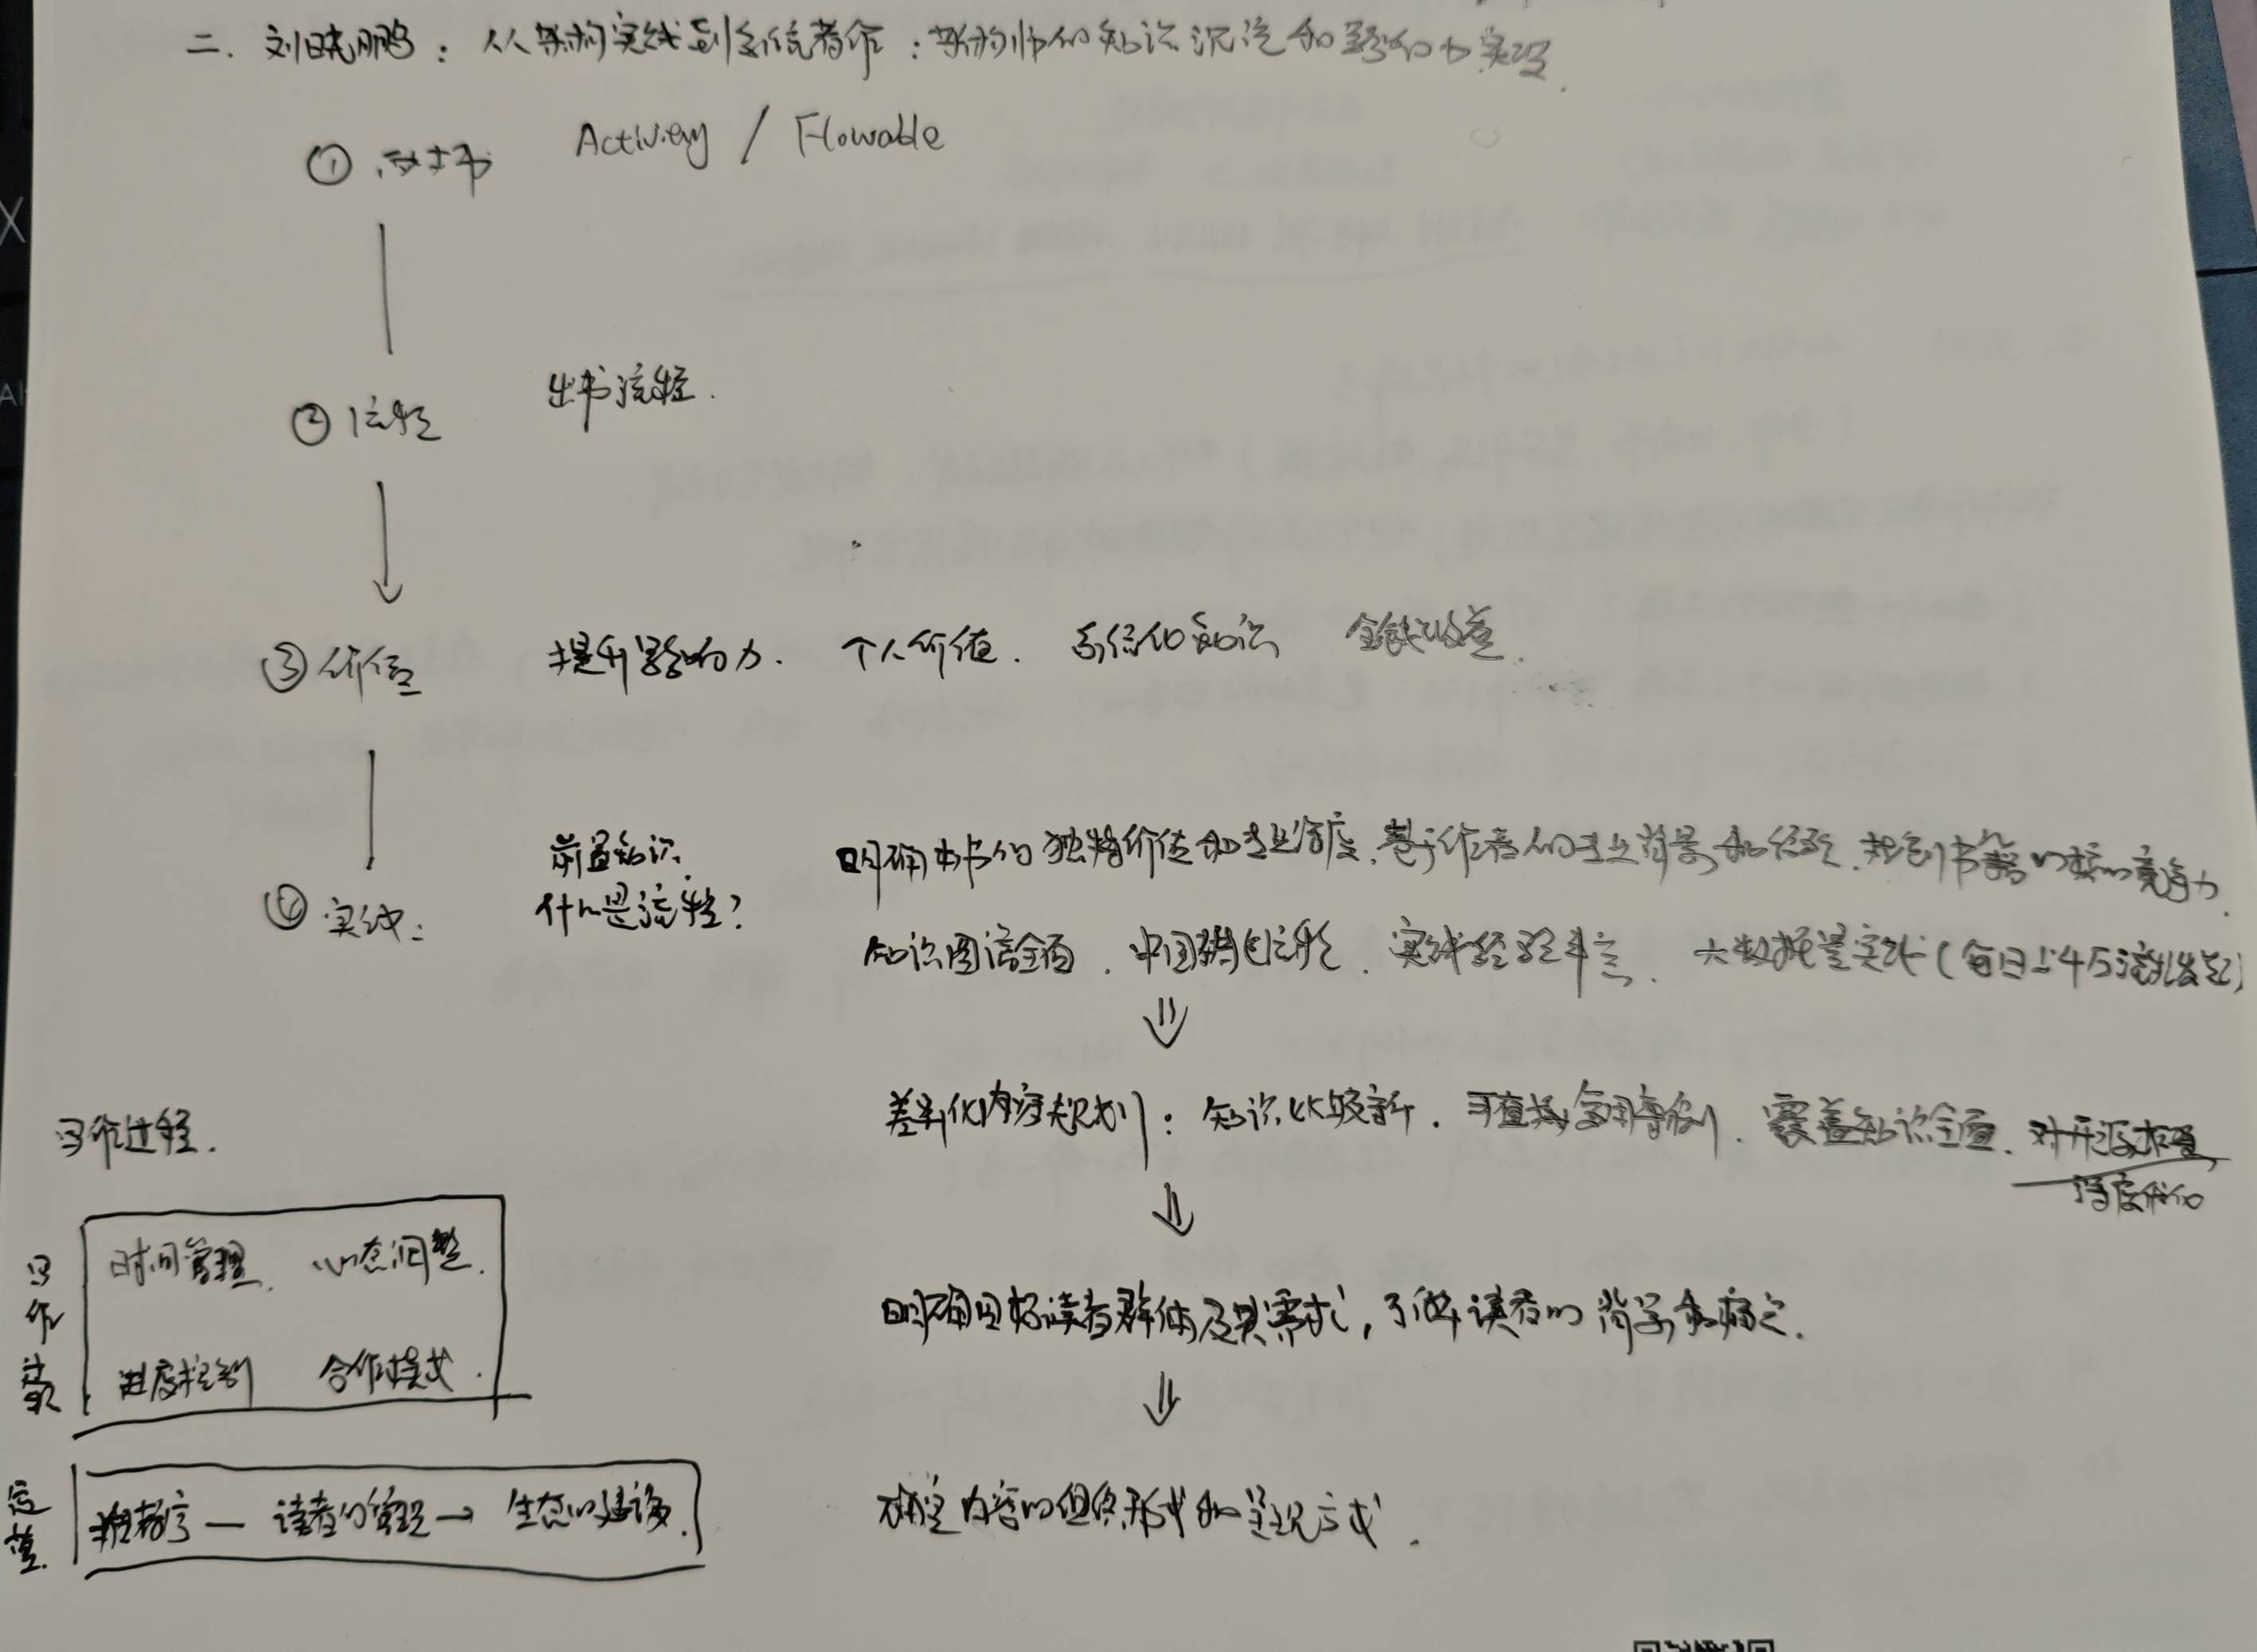 二. 刘晓鹏：从架构实践到系统著作：架构师的知识沉淀和影响力实现.
① 关于书 Activiey / Flowable
② 流程 出书流程.
③ 价值 提升影响力. 个人价值. 系统化知识 金钱收益.
④ 实践: 前置知识. 什么是流程?
明确本书的独特价值和专业深度, 基于作者的专业背景和经验, 找到书籍的核心竞争力.
知识图谱全面. 中国特色流程. 实践经验丰富. 大数据量实践(每日 45流程发起)
⇓
差异化内容规划: 知识比较新. 可直接复用 覆盖知识全面. 对开源框架
深度优化
⇓
明确目标读者群体及其需求, 了解读者的背景和痛点.
⇓
确定内容的组织形式和呈现方式.
写作过程.
写作过程
时间管理. 心态调整.
进度控制 合作模式.
运营.
推荐序 — 读者的管理 → 生态的建设.
X
Al